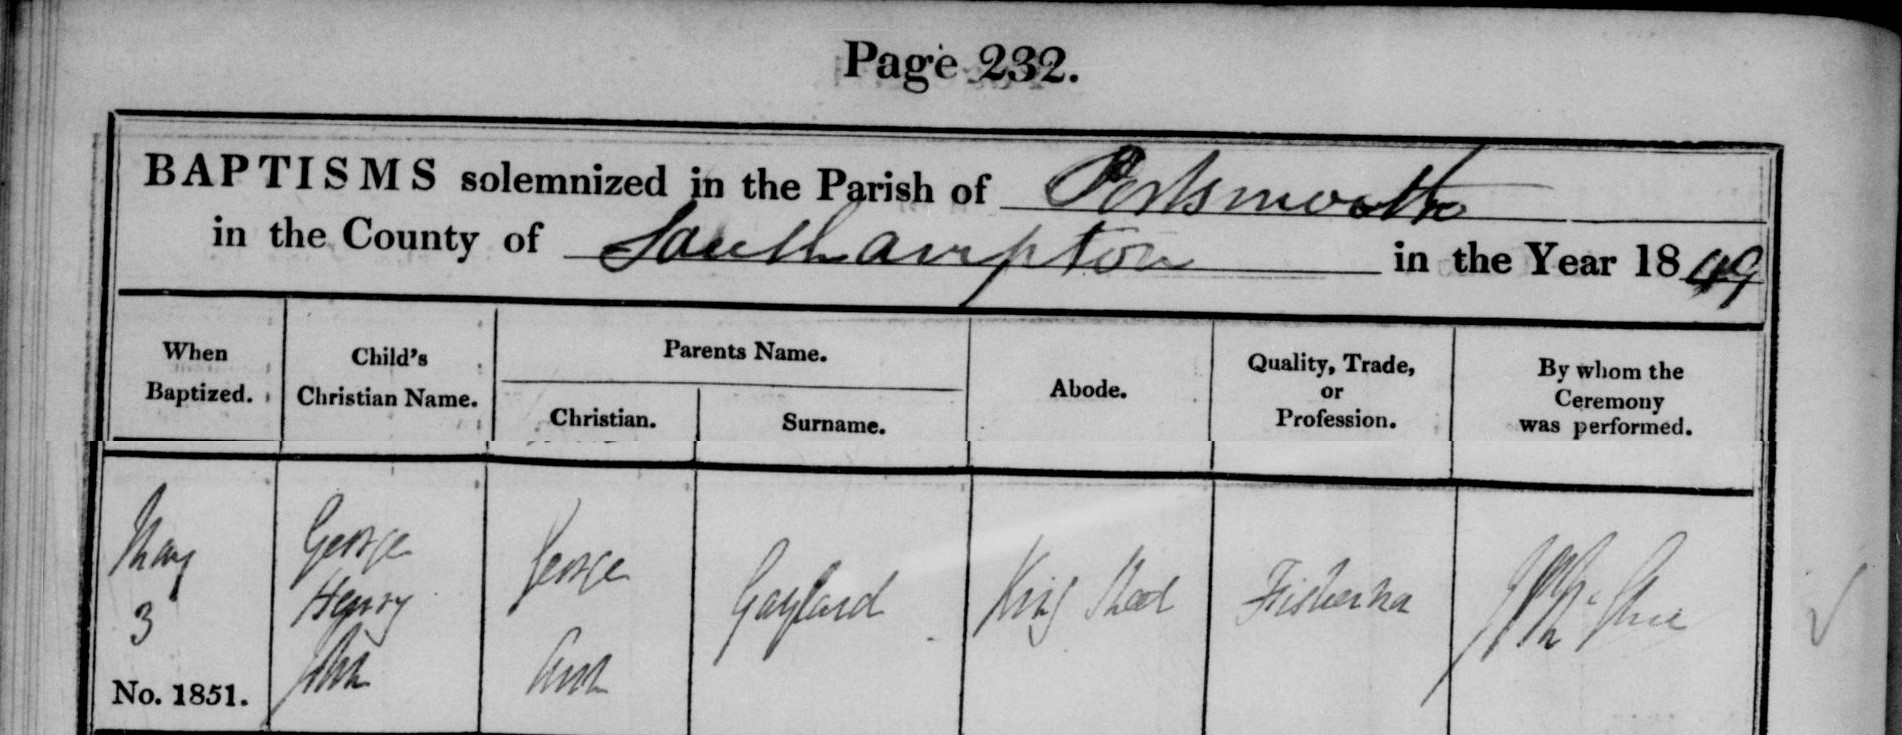 Page 232.
BAPTISMS solemnized in the Parish of Portsmouth
in the County of Southampton in the Year 1849
When Baptized.
Child's Christian Name.
Parents Name.
Christian.
Surname.
Abode.
Quality, Trade, or Profession.
By whom the Ceremony was performed.
May
3
No. 1851.
George
Henry
John
George
Ann
Gaylard
King Street
Fisherman